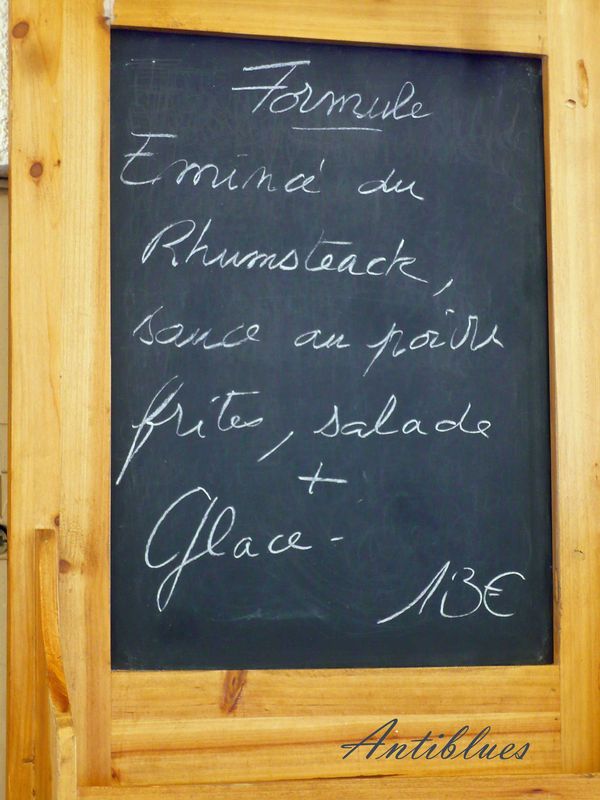 Formule
Emincé du
Rhumsteack,
sauce au poivre
frites, salade
+
Glace -
13€
Antiblues